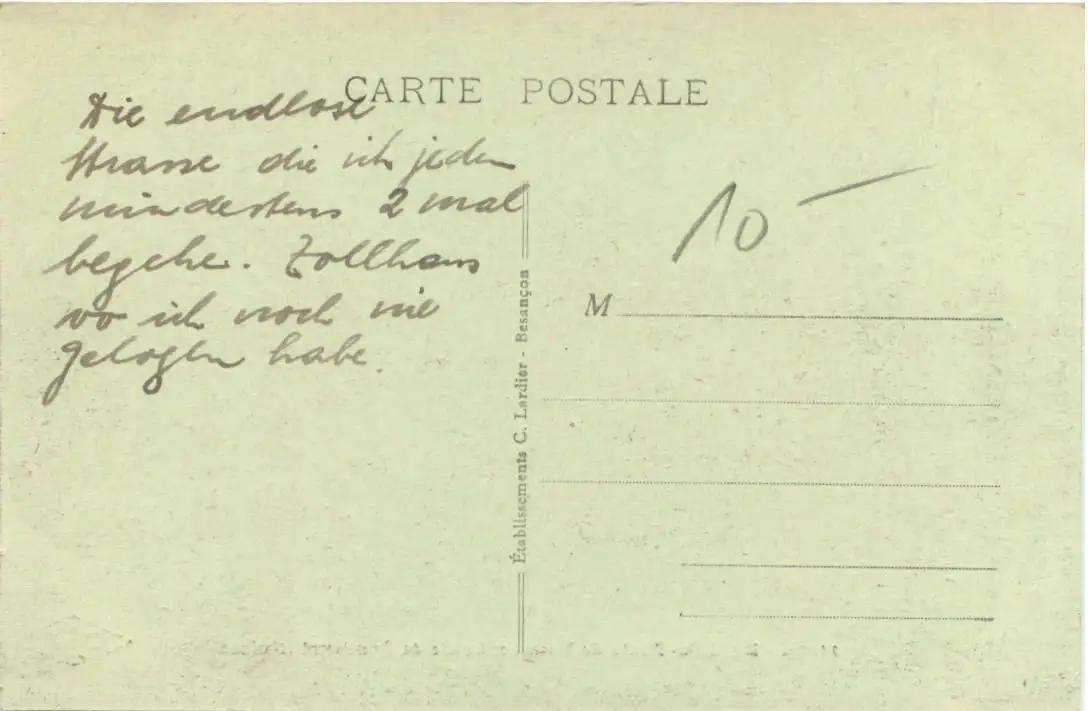 CARTE POSTALE
Die endlose
Strasse die ich jeden
mindestens 2 mal
begehe. Zollhaus
wo ich noch nie
gelogen habe.
10 –
M
Établissements C. Lardier - Besançon